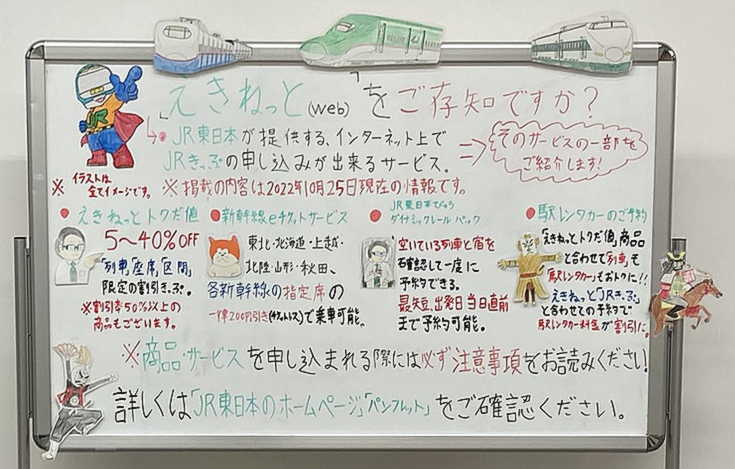 「えきねっと(web)」をご存知ですか？
JR東日本が提供する、インターネット上で
JRきっぷの申し込みが出来るサービス。
⇒そのサービスの一部を
ご紹介します!
※イラストは
全てイメージです。
※掲載の内容は2022年10月25日現在の情報です。
●えきねっとトクだ値
5～40%OFF
「列車」「座席」「区間」
限定の割引きっぷ。
※割引率50%以上の
商品もございます。
●新幹線eチケットサービス
東北・北海道・上越・
北陸・山形・秋田、
各新幹線の指定席の
一律200円引き(チケットレス)で乗車可能。
●JR東日本びゅう
ダイナミックレールパック
空いている列車と宿を
確認して一度に
予約できる。
最短、出発日当日直前
まで予約可能。
●駅レンタカーのご予約
「えきねっとトクだ値」商品
と合わせて列車も
駅レンタカーもおトクに!!
えきねっと「JRきっぷ」
と合わせての予約で
駅レンタカー料金が割引に。
※商品・サービスを申し込まれる際には必ず注意事項をお読みください!
詳しくは「JR東日本のホームページ」「パンフレット」をご確認ください。